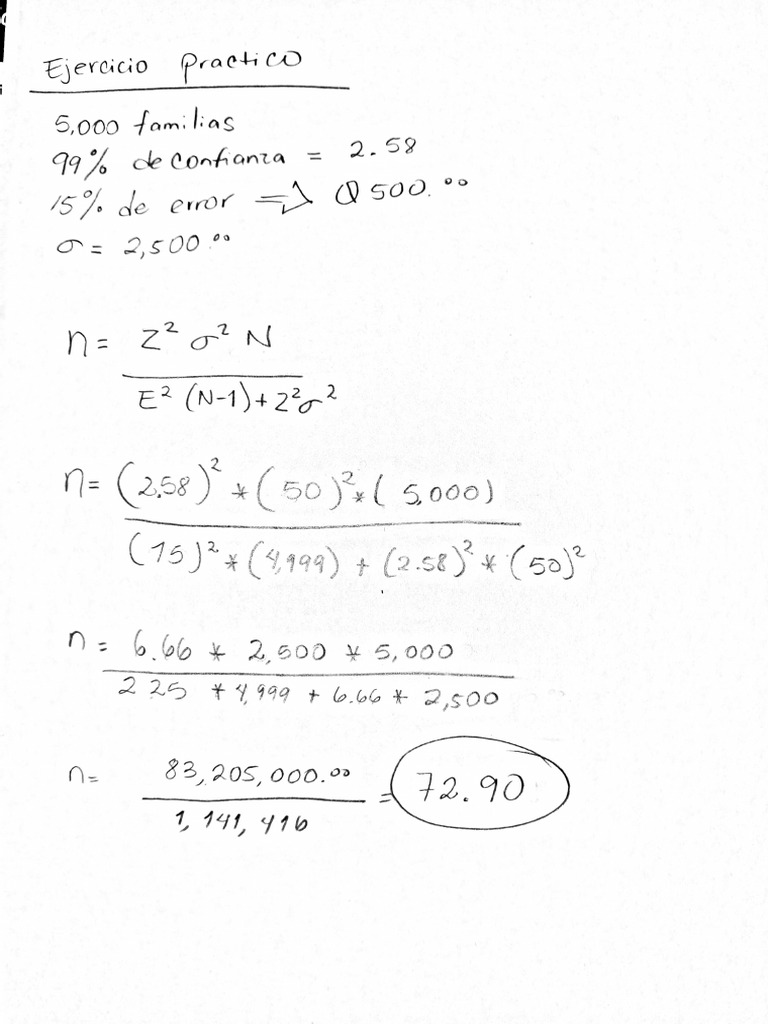 Ejercicio practico
5,000 familias
99% de confianza = 2.58
15% de error => Q 500.00
σ = 2,500.00
n = Z² σ² N
E² (N-1) + Z²σ²
n = (2.58)² * (50)² * (5,000)
(15)² * (4,999) + (2.58)² * (50)²
n = 6.66 * 2,500 * 5,000
225 * 4,999 + 6.66 * 2,500
n = 83,205,000.00 = 72.90
1,141,416